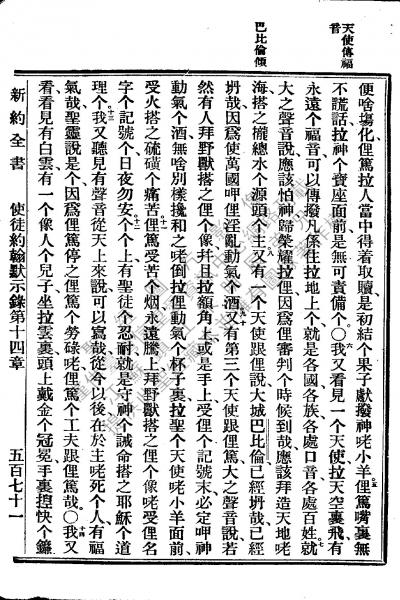 天使傳福音
巴比倫傾
便啥塲化俚篤拉人當中得着取贖是初結个果子獻撥神咾小羊俚篤嘴裏無
不謊話拉神个寶座面前是無可責備个〇我又看見一个天使拉天空裏飛有
永遠个福音可以傳撥凡係住拉地上个就是各國各族各處口音各處百姓就
大之聲音說應該怕神歸榮耀拉俚因爲俚審判个時候到哉應該拜造天地咾
海搭之攏總水个源頭个主又有一个天使跟俚說大城巴比倫已經坍哉已經
坍哉因爲使萬國呷俚淫亂動氣个酒又有第三个天使跟俚篤大之聲音說若
然有人拜野獸搭之俚个像并且拉額角上或是手上受俚个記號末必定呷神
動氣个酒無啥別樣攙和之咾倒拉俚動氣个杯子裏拉聖个天使咾小羊面前
受火搭之硫磺个痛苦俚篤受苦个烟永遠騰上拜野獸搭之俚个像咾受俚名
字个記號个日夜勿安个个上有聖徒个忍耐就是守神个誡命搭之耶穌个道
理个我又聽見有聲音從天上來說可以寫哉從今以後在於主咾死个人有福
氣哉聖靈說是个因爲俚篤停之俚篤个勞碌咾俚篤个工夫跟俚篤哉〇我又
看看見有白雲有一个像人个兒子坐拉雲裏頭上戴金个冠冕手裏捏快个鐮
新約全書　使徒約翰默示錄第十四章　五百七十一